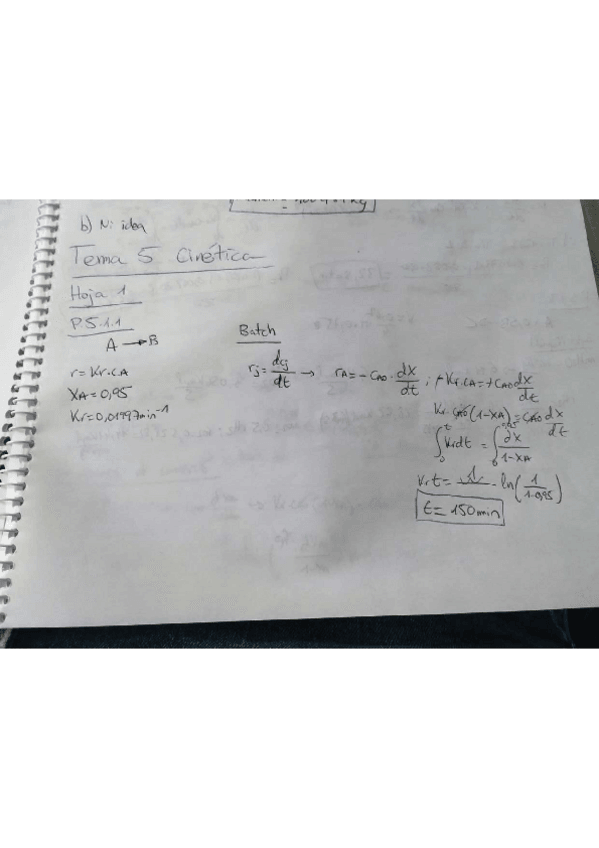 b) Ni idea
Tema 5 Cinética
Hoja 1
P.5.1.1
A → B
r = Kr·CA
XA = 0,95
Kr = 0,01997 min⁻¹
Batch
rj = dcj/dt → rA = -CA0 · dX/dt ; +Kr·CA = +CA0 dX/dt
Kr · CA0 (1-XA) = CA0 dX/dt
∫₀ᵗ Kr dt = ∫₀^0,95 dX/(1-XA)
Kr t = ln(1/(1-0,95))
t = 150 min